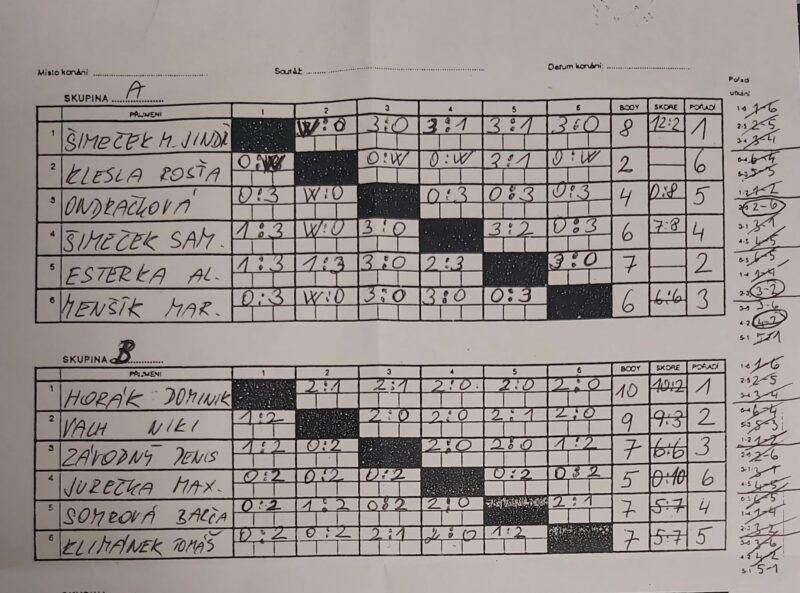 Místo konání: Soutěž: Datum konání:
Pořadí
utkání
SKUPINA A
PŘÍJMENÍ 1 2 3 4 5 6 BODY SKÓRE POŘADÍ
1 ŠIMEČEK M. JINDŘ W:0 3:0 3:1 3:1 3:0 8 12:2 1
2 KLESLA ROSŤA 0:W 0:W 0:W 3:1 0:W 2 6
3 ONDRAČKOVÁ 0:3 W:0 0:3 0:3 0:3 4 0:8 5
4 ŠIMEČEK SAM. 1:3 W:0 3:0 3:2 0:3 6 7:8 4
5 ESTERKA AL. 1:3 1:3 3:0 2:3 3:0 7 2
6 MENŠÍK MAR. 0:3 W:0 3:0 3:0 0:3 6 6:6 3
1-6
2-5
3-4
6-4
5-3
1-2
2-6
3-1
4-5
6-5
1-4
3-2
3-6
4-2
5-1
SKUPINA B
PŘÍJMENÍ 1 2 3 4 5 6 BODY SKÓRE POŘADÍ
1 HORÁK DOMINIK 2:1 2:1 2:0 2:0 2:0 10 10:2 1
2 VALH NIKI 1:2 2:0 2:0 2:1 2:0 9 9:3 2
3 ZÁVODNÝ DENIS 1:2 0:2 2:0 2:0 1:2 7 6:6 3
4 JUREČKA MAX. 0:2 0:2 0:2 0:2 0:2 5 0:10 6
5 SOMROVÁ BARČA 0:2 1:2 0:2 2:0 2:1 7 5:7 4
6 KLIMÁNEK TOMÁŠ 0:2 0:2 2:1 2:0 1:2 7 5:7 5
1-6
2-5
3-4
6-4
5-3
1-2
2-6
3-1
4-5
6-5
1-4
3-2
3-6
4-2
5-1
SKUPINA